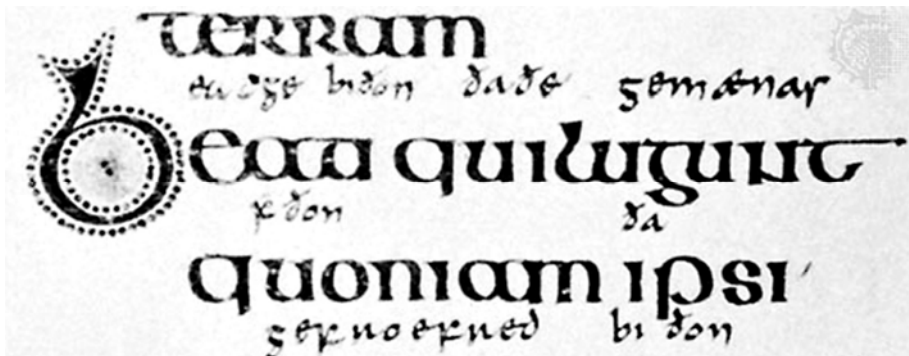 terram
eadge biðon ðaðe gemænas
beati qui lugunt
fðon ða
quoniam ipsi
gefroefred biðon